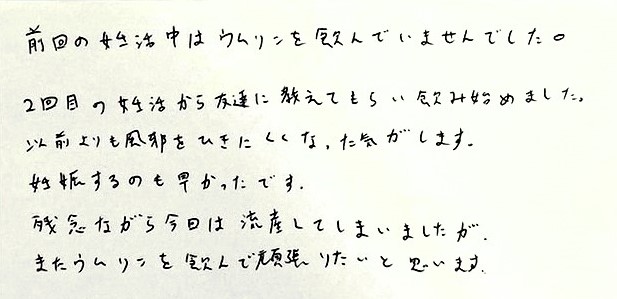 前回の妊活中はウムリンを飲んでいませんでした。
2回目の妊活から友達に教えてもらい飲み始めました。
以前よりも風邪をひきにくくなった気がします。
妊娠するのも早かったです。
残念ながら今回は流産してしまいましたが、
またウムリンを飲んで頑張りたいと思います。